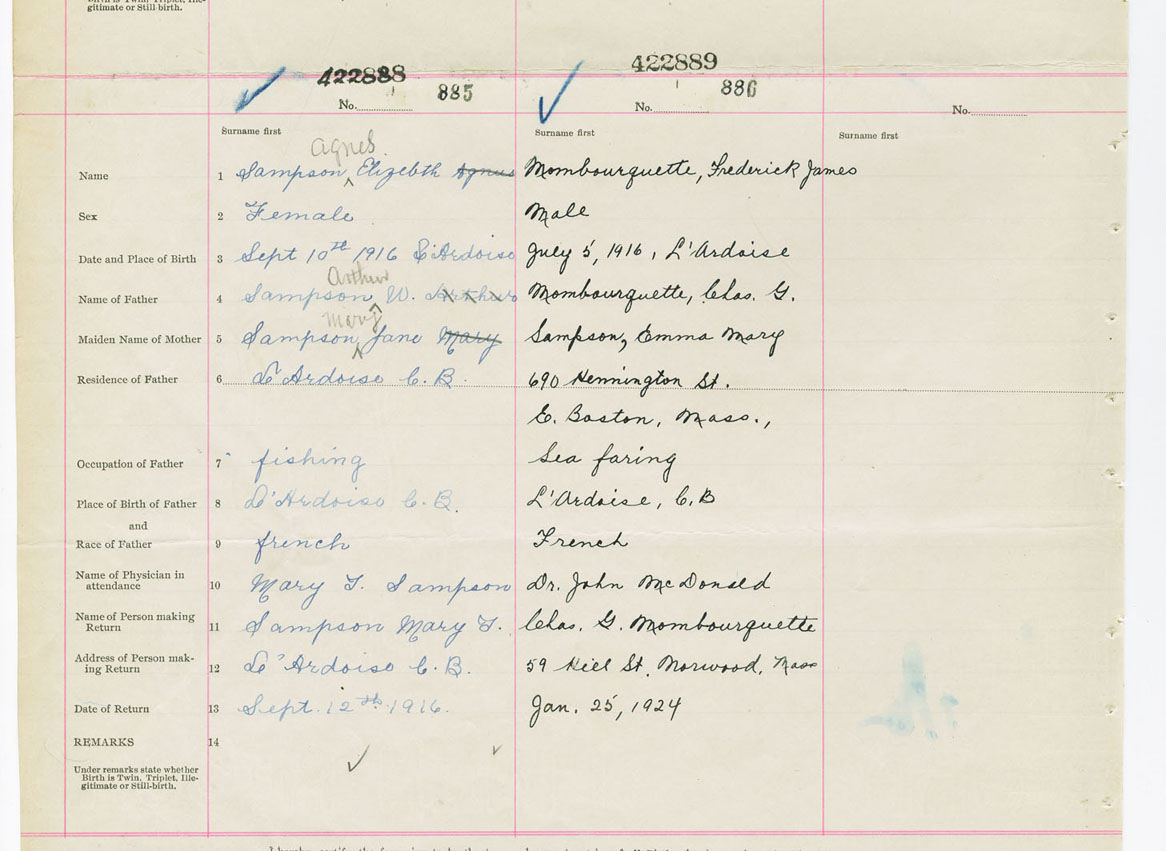 Birth is Twin, Triplet, Ille-
gitimate or Still birth.
422888 422889
885 886
No. No. No.
Surname first Surname first Surname first
agnes
Name 1 Sampson, Elizebth Agnus Mombourquette, Frederick James
Sex 2 Female Male
Date and Place of Birth 3 Sept 10th 1916 L'Ardoise July 5, 1916, L'Ardoise
Arthur
Name of Father 4 Sampson, W. Arthur Mombourquette, Chas. G.
Mary
Maiden Name of Mother 5 Sampson, Jane Mary Sampson, Emma Mary
Residence of Father 6 L'Ardoise C.B. 690 Hennington St.
E. Boston, Mass.,
Occupation of Father 7 fishing Sea faring
Place of Birth of Father 8 L'Ardoise C.B. L'Ardoise, C.B
and
Race of Father 9 french French
Name of Physician in
attendance 10 Mary T. Sampson Dr. John McDonald
Name of Person making
Return 11 Sampson Mary T. Chas. G. Mombourquette
Address of Person mak-
ing Return 12 L'Ardoise C.B. 59 Hill St. Norwood, Mass
Date of Return 13 Sept. 12th 1916. Jan. 25, 1924
REMARKS 14
Under remarks state whether
Birth is Twin, Triplet, Ille-
gitimate or Still-birth.